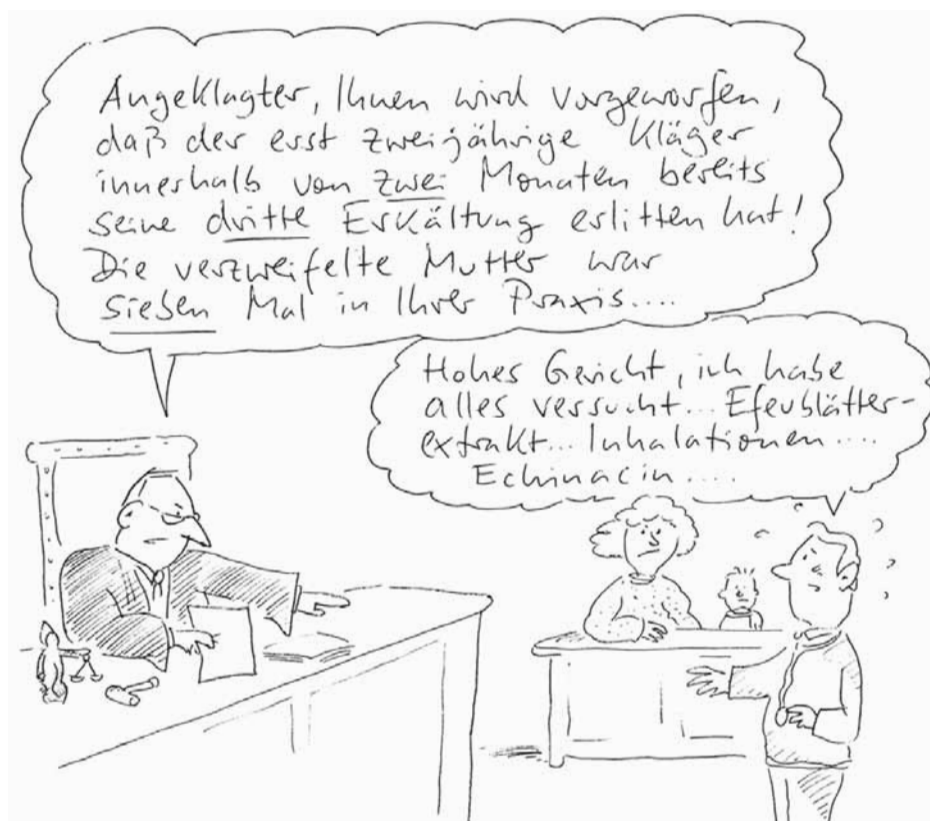 Angeklagter, Ihnen wird vorgeworfen,
daß der erst zweijährige Kläger
innerhalb von zwei Monaten bereits
seine dritte Erkältung erlitten hat!
Die verzweifelte Mutter war
sieben Mal in Ihrer Praxis....
Hohes Gericht, ich habe
alles versucht... Efeublätter-
extrakt... Inhalationen....
Echinacin....